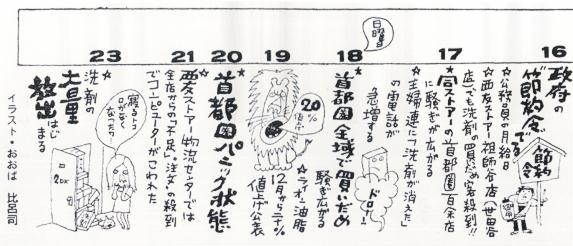 日曜日
16
政府の
節約令でる
節約令
☆公務員の月給日
☆西友ストアー祖師谷店(世田谷
店)でも洗剤の買だめ客殺到!!
17
☆同ストアーの首都圏百余店
に騒ぎが広がる
☆主婦連に「洗剤が消えた」
の電話が
急増する
ドロー
18
首都圏全域で買いだめ
騒ぎ広がる
19
20%
値上げ
☆ライオン油脂
12月から二十%
値上げ公表
20
首都圏パニック状態
21
☆西友ストアー物流センターでは
全店からの「不足」、注文の殺到
でコンピューターがこわれた
23
☆洗剤の
大量
放出はじ
まる
寝るトコ
ロがなく
なったワ
2DK
イラスト・おおば 比呂司